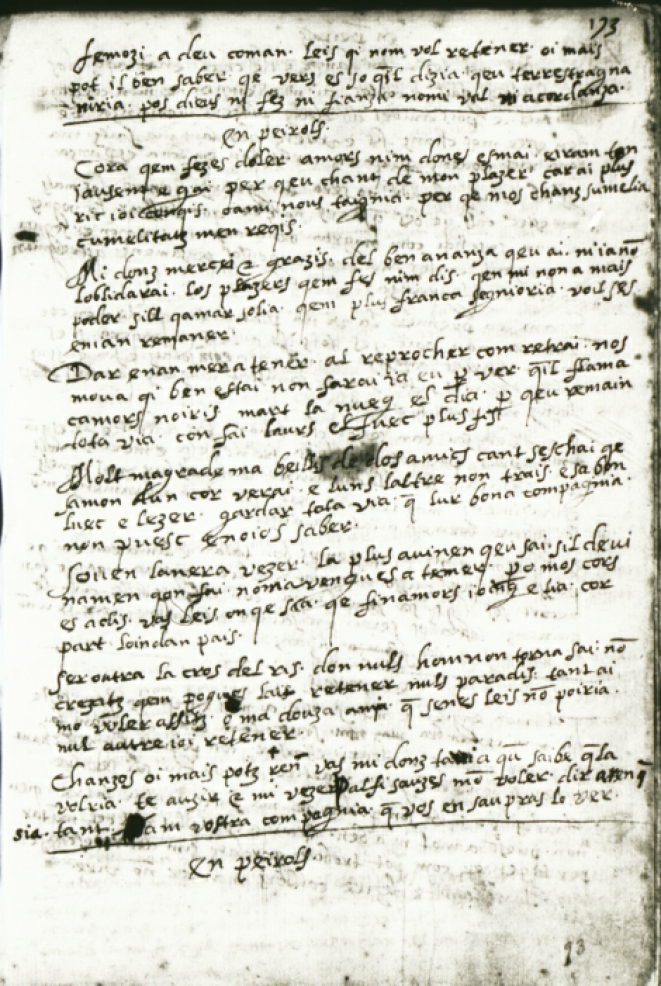 193
femozi. a deu coman. leis qi nom vol retener. oi mais
pot il ben saber. qe vers es so qil dizia. qeu terrestragna
niria. pos dieus ni fez ni fianza nomi val ni acordanza.
En peirols.
Cora qem fezes doler. amors nim dones esmai. eiram ten
iausent e gai. per qeu chant de mon plazer. car ai plus
ric ioi conqis. oami nous taigma. per qe mos chanz sumelia
cumelitatz men reqis.
Mi donz mercei e grazis. del ben ananza qeu ai. mianō
loblidarai. los plazers qem fes nim dis. qen mi non a mais
poder sill qamar solia. qem plus franca segnioria. vol ses
enian remaner.
Dar enan mer a tener. al reprocher com retrai. nos
mova qi ben estai non farai ia eu p ver. qil flama
camors noiris. mart la nueg es dia. p qeu remain
tota via. con fai laurs el fuec plus fis
Molt magrade ma bellis de dos amics cant seschai qe
samon dun cor verai. e luns laltre non trais. e sa bon
luec e lezer. gardar tota via. q lur bona compagnia.
non puesc enoios saber.
Soven lanera vezer. la plus avinen qeu sai. sil devi
namen qon fai. noma vengues a temer. po mos cors
es aclis. vas leis onqe sia. qe finamors ioing e lia. cor
part loindan pais.
Ser outra la cros del ras. don nuls hom non torna sai. nō
crezatz qem pogues lai retener nuls paradis. tant ai
mō voler assitz. e ma douza amia. q senes leis nō poiria.
nul autre ioi retener.
Chanzos oi mais potz ten vas mi donz tavia qu saibe qla
volria. te auzir e mi vezer dalfi sauzes mō voler. dir aten q
sia. tant am vostra compagnia. q vos en saupras lo ver.
En peirols
93